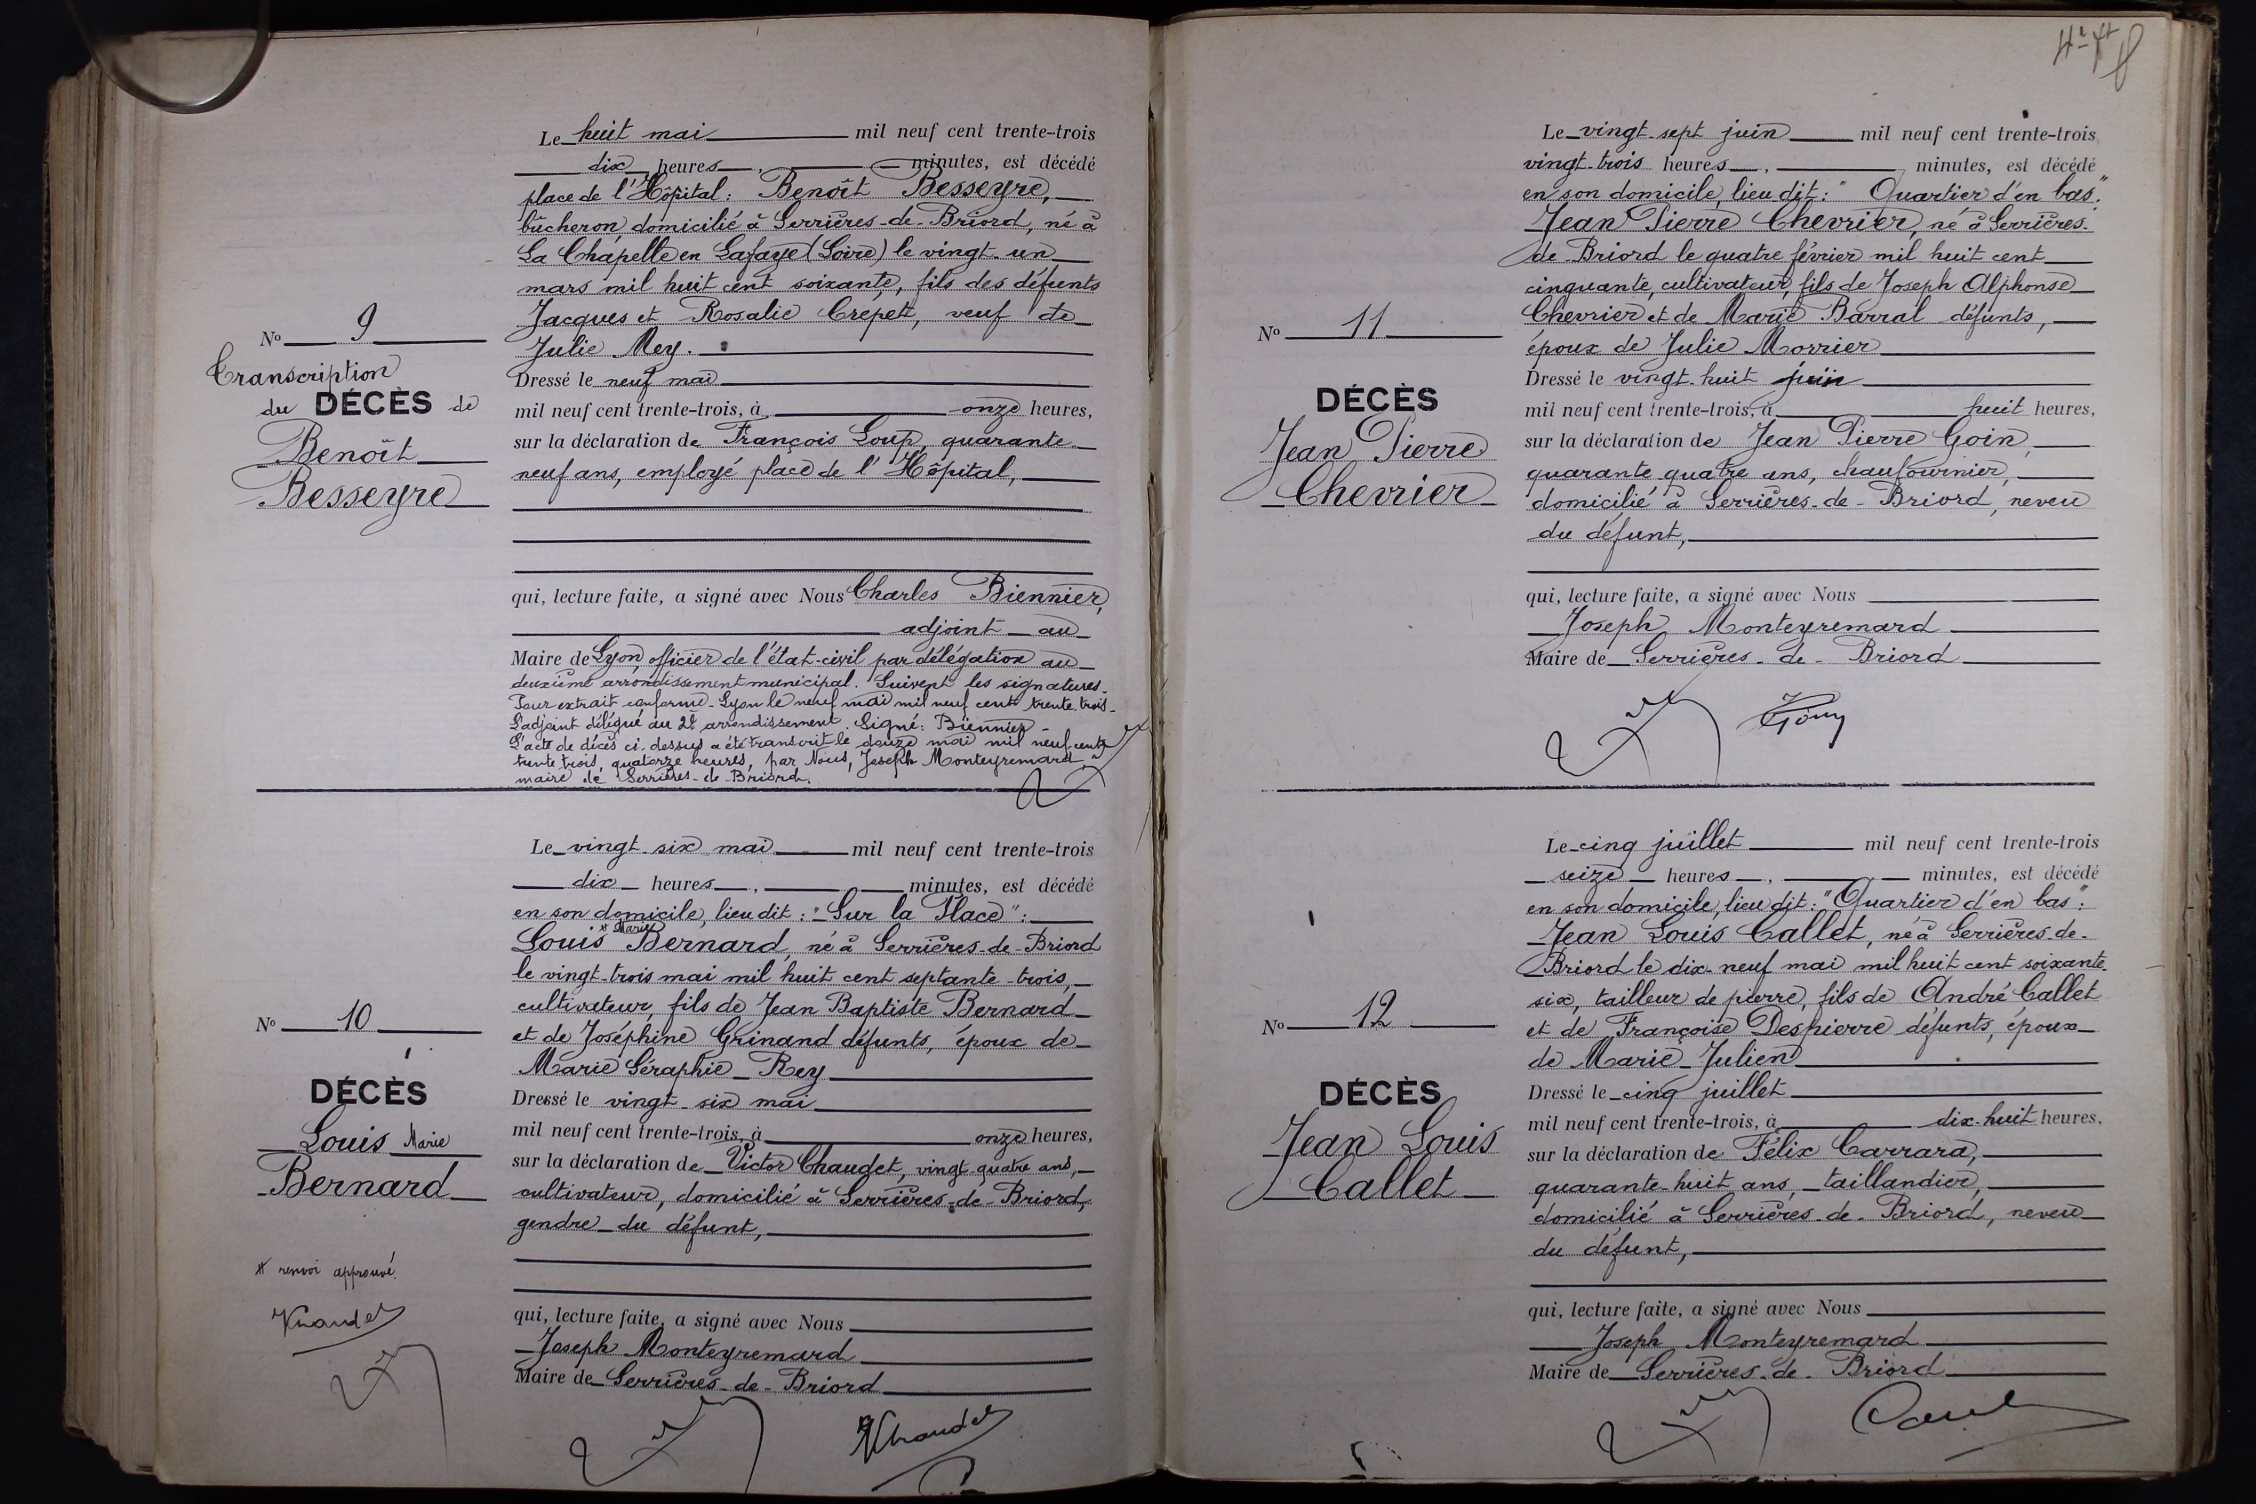 Le huit mai mil neuf cent trente-trois
dix heures, minutes, est décédé
place de l'Hôpital: Benoît Besseyre,
bûcheron, domicilié à Serrières-de-Briord, né à
La Chapelle en Lafaye (Loire) le vingt-un
mars mil huit cent soixante, fils des défunts
Jacques et Rosalie Crepet, veuf de
Julie Mey.
No 9
Transcription
du DÉCÈS de
Benoît
Besseyre
Dressé le neuf mai
mil neuf cent trente-trois, à onze heures,
sur la déclaration de François Loup, quarante
neuf ans, employé place de l'Hôpital,
qui, lecture faite, a signé avec Nous Charles Biennier,
adjoint au
Maire de Lyon, officier de l'état-civil par délégation au
deuxième arrondissement municipal. Suivent les signatures.
Pour extrait conforme - Lyon le neuf mai mil neuf cent trente-trois -
L'adjoint délégué au 2e arrondissement. Signé: Biennier -
L'acte de décès ci-dessus a été transcrit le douze mai mil neuf cent
trente trois, quatorze heures, par Nous, Joseph Monteyremard
maire de Serrières-de-Briord.
Le vingt-six mai mil neuf cent trente-trois
dix heures, minutes, est décédé
en son domicile, lieu dit: "Sur la Place":
Louis * Marie Bernard, né à Serrières-de-Briord
le vingt-trois mai mil huit cent septante-trois,
cultivateur, fils de Jean Baptiste Bernard
et de Joséphine Grinand défunts, époux de
Marie Séraphie Rey
No 10
DÉCÈS
Louis Marie
Bernard
Dressé le vingt-six mai
mil neuf cent trente-trois, à onze heures,
sur la déclaration de Victor Chaudet, vingt quatre ans,
cultivateur, domicilié à Serrières-de-Briord,
gendre du défunt,
* renvoi approuvé.
VChaudet
qui, lecture faite, a signé avec Nous
Joseph Monteyremard
Maire de Serrières-de-Briord
VChaudet
Le vingt-sept juin mil neuf cent trente-trois
vingt-trois heures, minutes, est décédé
en son domicile, lieu dit: "Quartier d'en bas":
Jean Pierre Chevrier, né à Serrières-
de-Briord le quatre février mil huit cent
cinquante, cultivateur, fils de Joseph Alphonse
Chevrier et de Marie Barral défunts,
époux de Julie Morrier
No 11
DÉCÈS
Jean Pierre
Chevrier
Dressé le vingt-huit juin
mil neuf cent trente-trois, à huit heures,
sur la déclaration de Jean Pierre Goin,
quarante quatre ans, chaufournier,
domicilié à Serrières-de-Briord, neveu
du défunt,
qui, lecture faite, a signé avec Nous
Joseph Monteyremard
Maire de Serrières-de-Briord
Le cinq juillet mil neuf cent trente-trois
seize heures, minutes, est décédé
en son domicile, lieu dit: "Quartier d'en bas":
Jean Louis Callet, né à Serrières-de-
Briord le dix-neuf mai mil huit cent soixante-
six, tailleur de pierre, fils de André Callet
et de Françoise Despierre défunts, époux
de Marie Julien
No 12
DÉCÈS
Jean Louis
Callet
Dressé le cinq juillet
mil neuf cent trente-trois, à dix-huit heures,
sur la déclaration de Félix Carrara,
quarante-huit ans, taillandier,
domicilié à Serrières-de-Briord, neveu
du défunt,
qui, lecture faite, a signé avec Nous
Joseph Monteyremard
Maire de Serrières-de-Briord